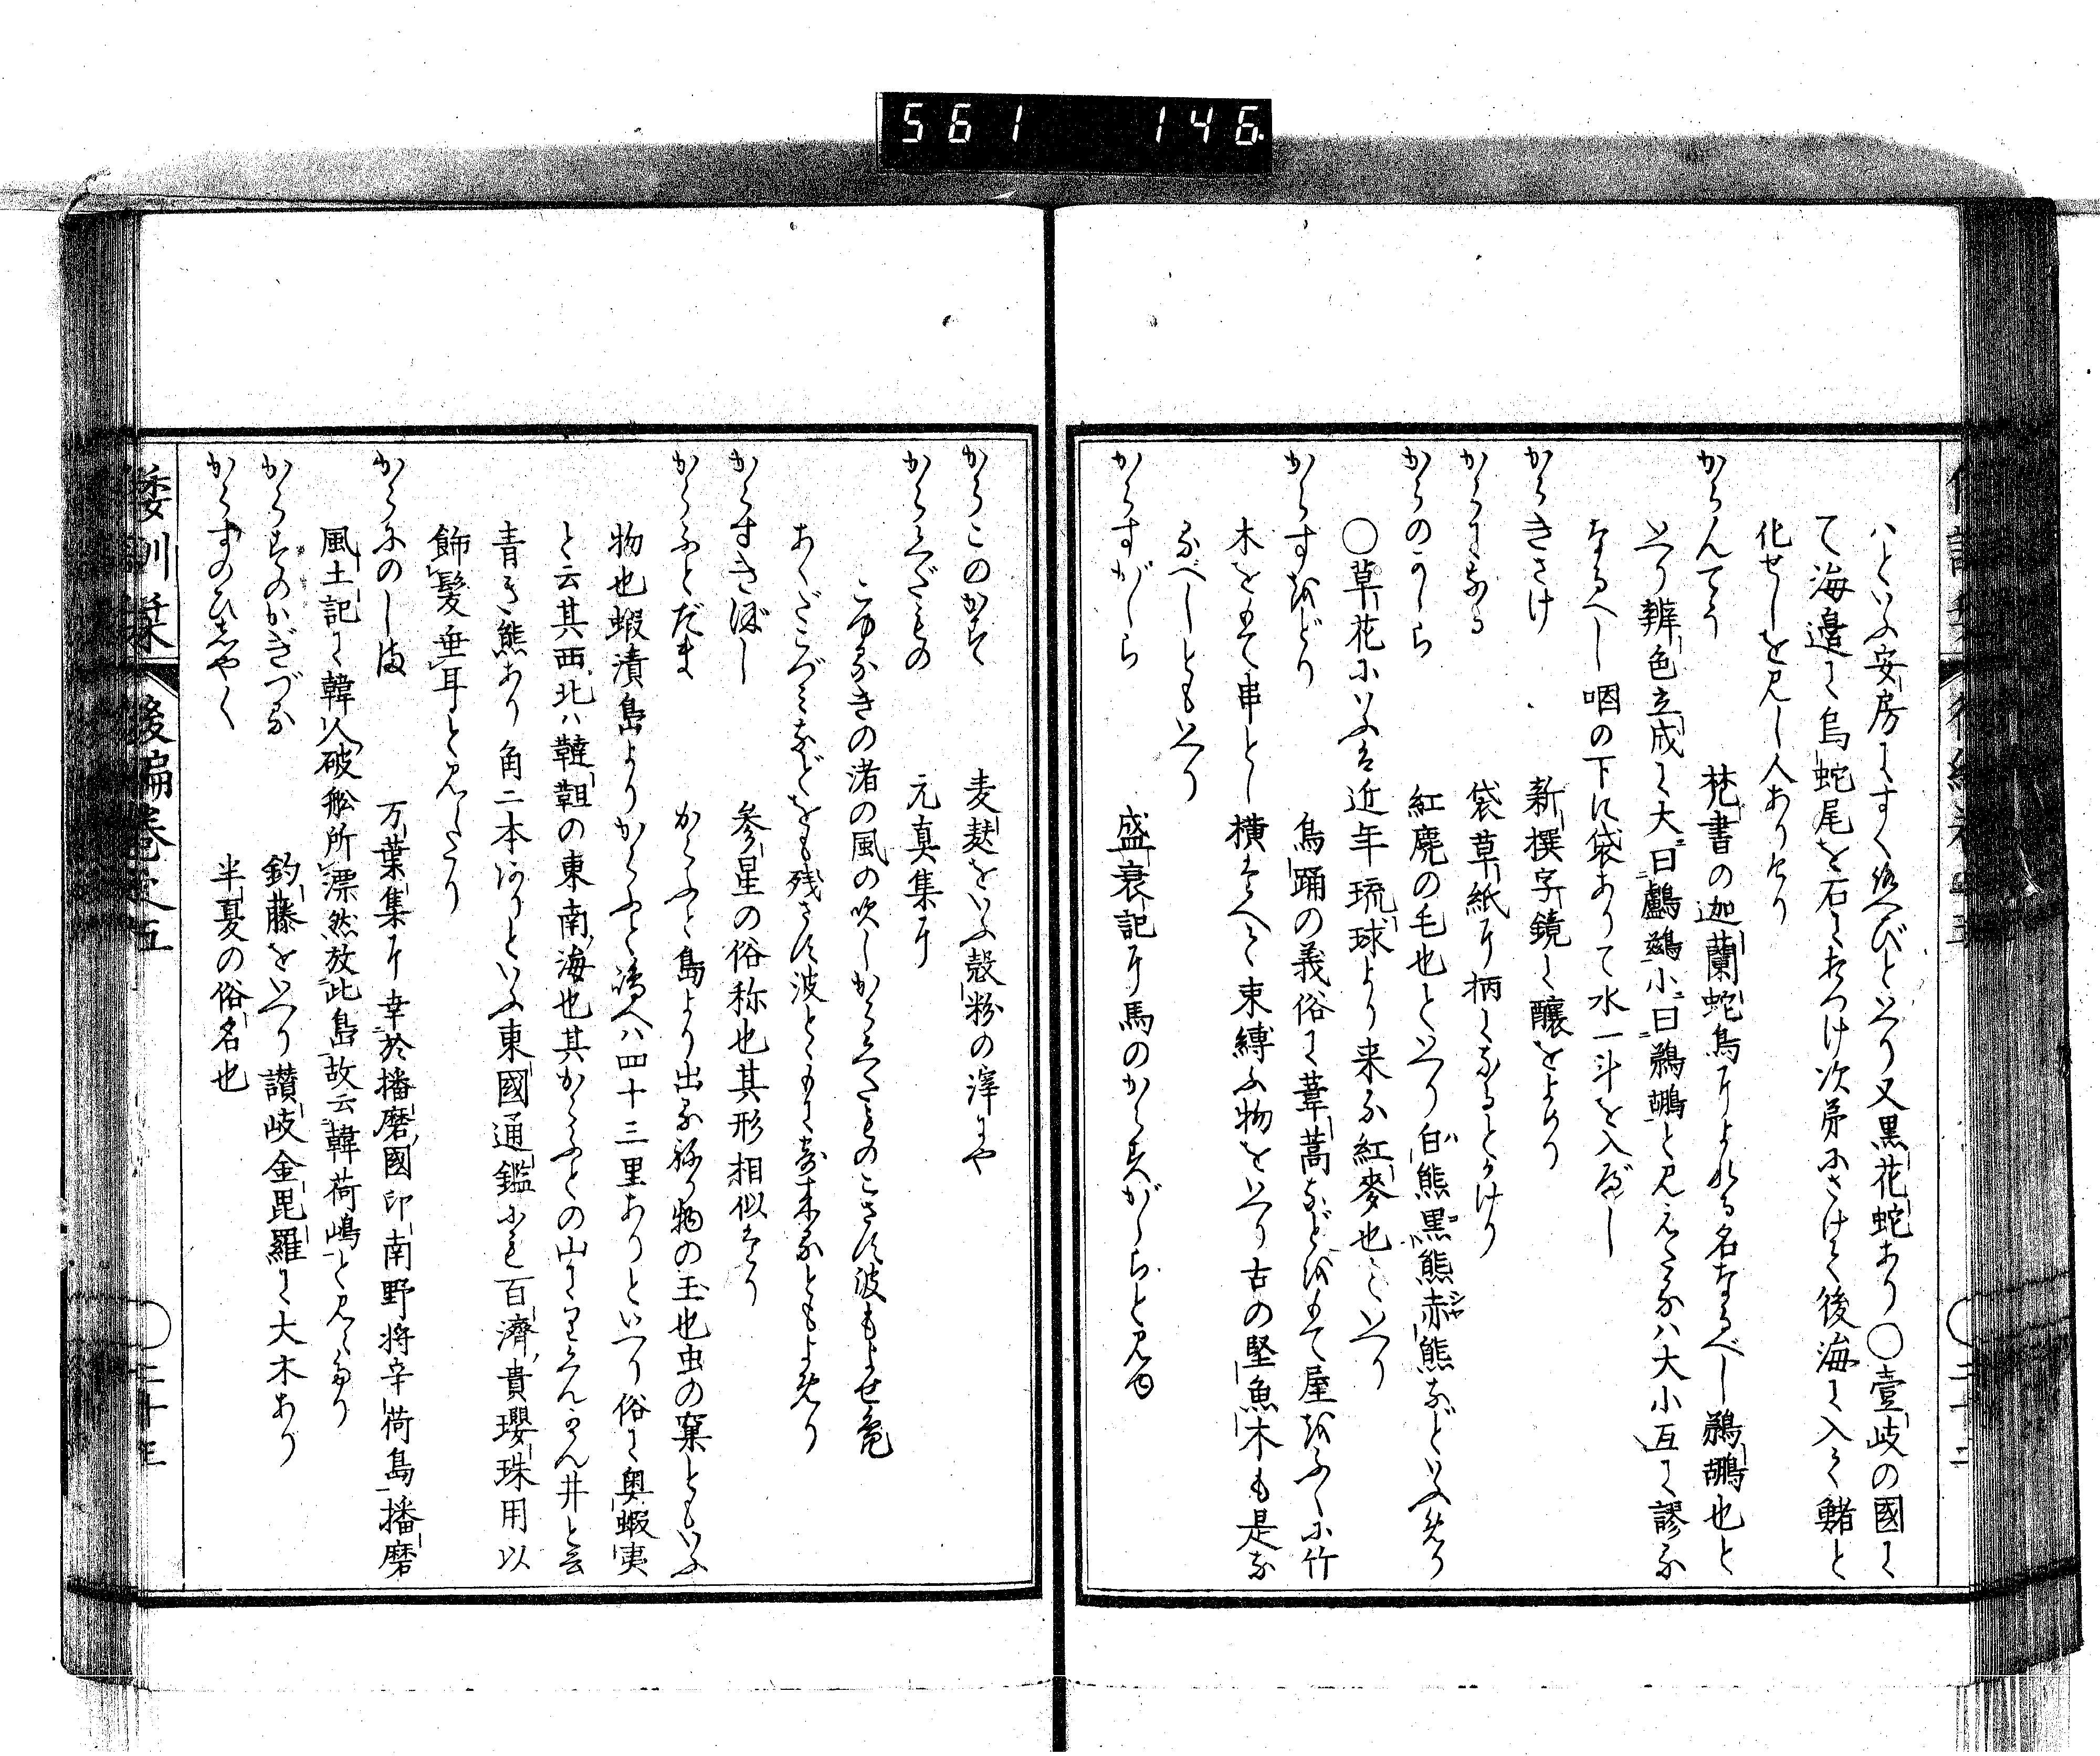 561 146
ハといふ安房にてすくへびといへり又黒花蛇あり〇壹岐の國に
て海邉にて烏蛇尾を石にたゝけ次第にさけて後海に入て鱆と
化せしを見し人ありけり
からんてう 梵書の迦蘭蛇鳥によれる名なるべし鵜鶘也と
いへり辨色立成に大曰鸕鷀小曰鵜鶘と見えたるハ大小互に謬る
なるへし咽の下に袋ありて水一斗を入べし
からきさけ 新撰字鏡に釀をよめり
からになる 袋草紙に柄になるとかけり
からのかしら 紅麾の毛也といへり白熊黒熊赤熊などいへり
〇草花にいふは近年琉球より来る紅麥也といへり
からすをどり 烏踊の義俗に葦蒿などをもて屋をふくに竹
木をもて串とし横たへて束縛ふ物をいへり古の堅魚木も是な
るべしともいへり
からすがしら 盛衰記に馬のからすがしらと見ゆ
からこのかす 麦麸をいふ殻粉の滓にや
からくだもの 元真集に
こゆるきの渚の風の吹しからくたものこさす波もよせ亀
あくたこづミなどをも残さす波とゝもに寄来るともよめり
からすきぼし 参星の俗称也其形相似たり
からふとだま からふと島より出るねり物の玉也虫の窠ともいふ
物也蝦濆島よりからふとへ渡へハ四十三里ありといへり俗に奥蝦夷
と云其西北ハ韃靼の東南海也其からふとの山にまくんかん井と云
青き熊あり角二本ありといふ東國通鑑にも百濟貴瓔珠用以
飾髪垂耳と見えたり
からにのしま 万葉集に幸於播磨國印南野将辛荷島播磨
風土記に韓人破舩所漂然放此島故云韓荷嶋と見えたり
からすのかぎづる 釣藤をいへり讃岐金毘羅に大木あり
からすのひしやく 半夏の俗名也
倭訓栞 後編巻之五